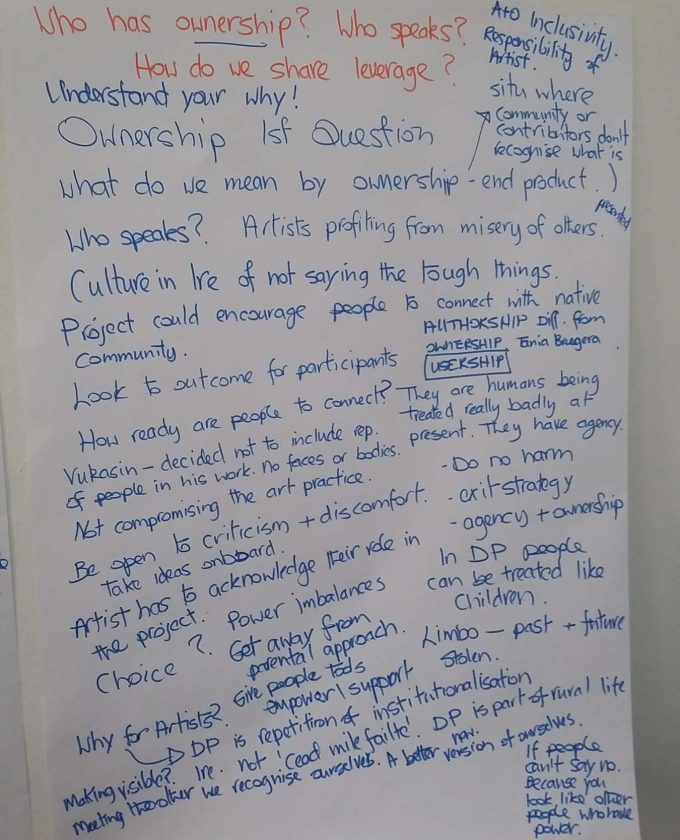 Who has ownership? Who speaks?
How do we share leverage?
Understand your why!
Ownership 1st Question
what do we mean by ownership - end product.)
A to Inclusivity.
Responsibility of
Artist.
situ where
community or
contributors don't
recognise what is
presented
Who speaks? Artists profiting from misery of others.
Culture in Ire of not saying the tough things.
Project could encourage people to connect with native
community.
AUTHORSHIP Diff. from
OWNERSHIP Tania Bruegera.
USERSHIP
Look to outcome for participants
How ready are people to connect?
They are humans being
treated really badly at
present. They have agency.
Vukasin - decided not to include rep.
of people in his work. no faces or bodies.
Not compromising the art practice.
Be open to criticism + discomfort.
Take ideas onboard.
Artist has to acknowledge their role in
the project.
- Do no harm
- exit strategy
- agency + ownership
In DP people
can be treated like
children.
Choice? Power imbalances
Get away from
parental approach.
Give people tools
empower/support
Limbo - past + future
stolen.
Why for Artists?
DP is repetition of institutionalisation
Making visible? Ire. not 'Cead mile failte'. DP is part of rural life
now.
Meeting the other we recognise ourselves. A better version of ourselves.
If people
can't say no.
because you
look like other
people who have
power.